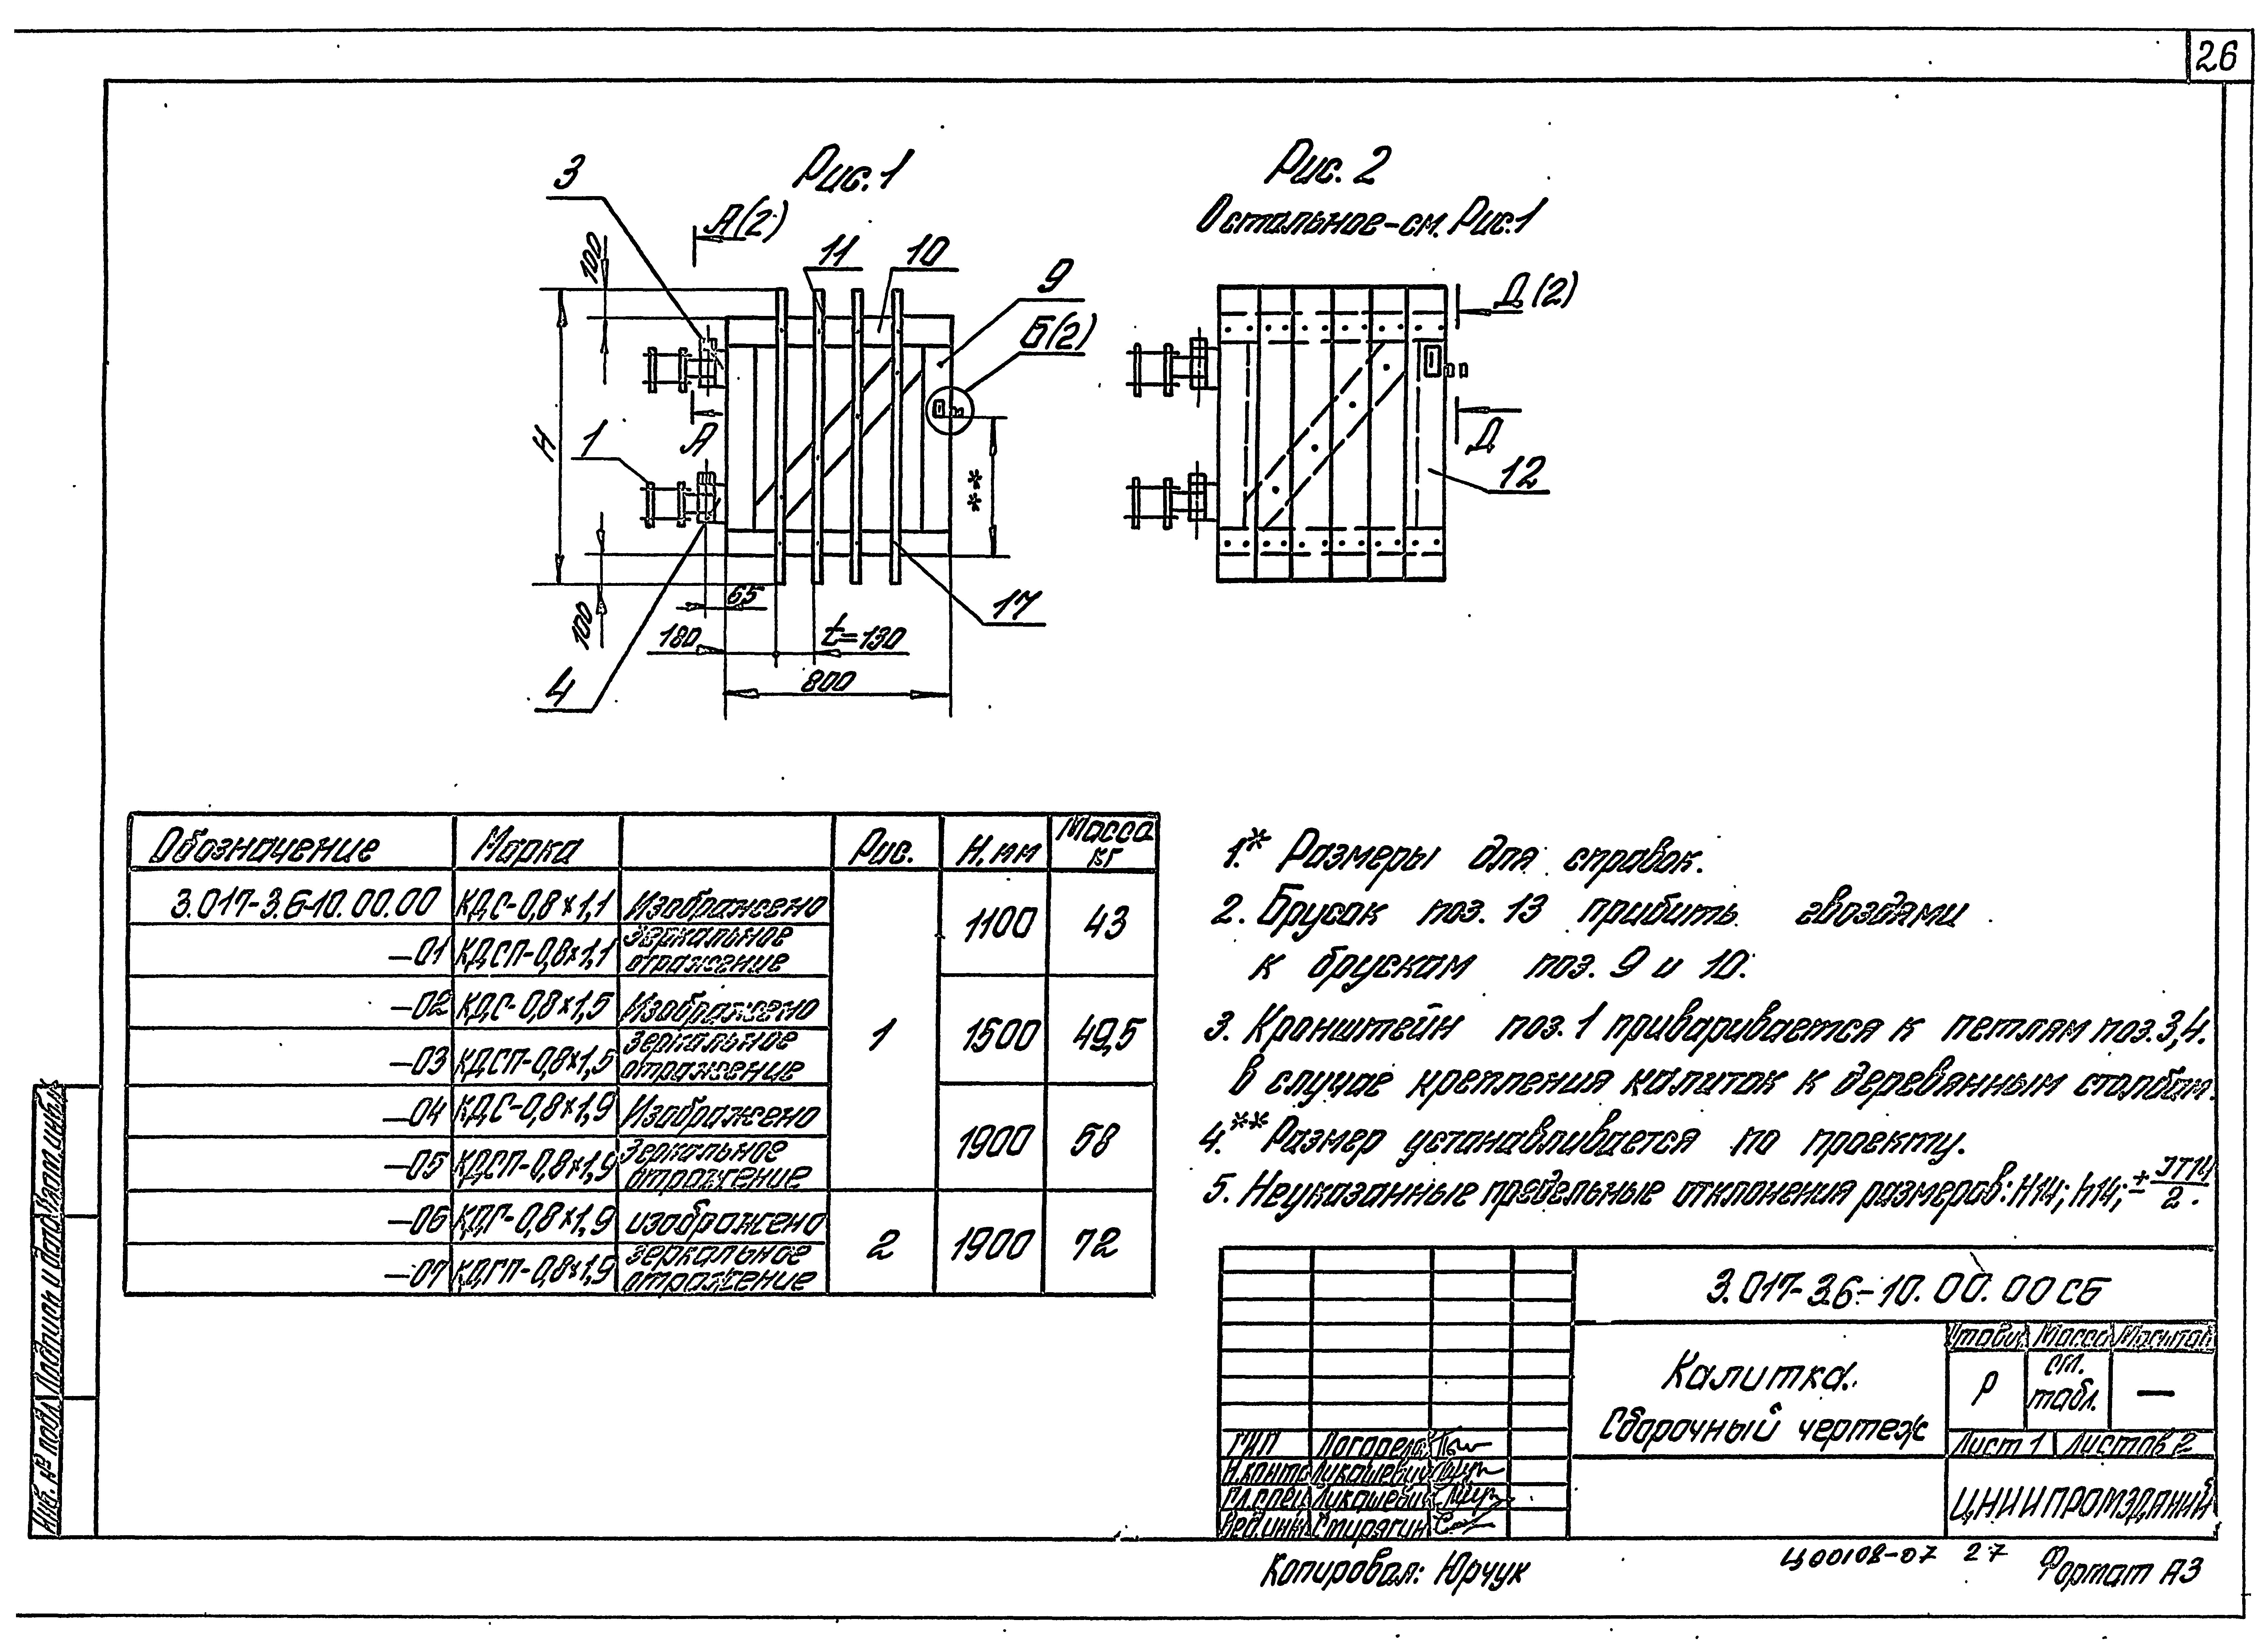 26
Рис. 1
Рис. 2
Остальное-см. Рис.1
3
А(2)
11
10
9
Б(2)
100
H
1
А
4
**
17
100
65
180
t=130
800
Д(2)
Д
12
Обозначение Марка Рис. Н, мм Масса кг
3.017-3.6-10.00.00 КДС-0,8×1,1 Изображено 1 1100 43
-01 КДСП-0,8×1,1 Зеркальное отражение
-02 КДС-0,8×1,5 Изображено 1500 49,5
-03 КДСП-0,8×1,5 Зеркальное отражение
-04 КДС-0,8×1,9 Изображено 1900 58
-05 КДСП-0,8×1,9 Зеркальное отражение
-06 КДГ-0,8×1,9 изображено 2 1900 72
-07 КДГП-0,8×1,9 зеркальное отражение
1.* Размеры для справок.
2. Брусок поз. 13 прибить гвоздями
к брускам поз. 9 и 10.
3. Кронштейн поз. 1 приваривается к петлям поз. 3,4.
в случае крепления калиток к деревянным столбам.
4.** Размер устанавливается по проекту.
5. Неуказанные предельные отклонения размеров: H14; h14; ± IT14/2.
3.017-3.6-10.00.00 СБ
Калитка.
Сборочный чертеж
Стадия Масса Масштаб
Р см. табл. —
Лист 1 Листов 2
ЦНИИПРОМЗДАНИЙ
ГИП
Н.контр Лукашевич
Гл.спец Лукашевич
Вед.инж Спирягин
Инв. № подл. Подпись и дата Взам. инв. №
Копировал: Юрчук
Ц00108-07 27
Формат А3